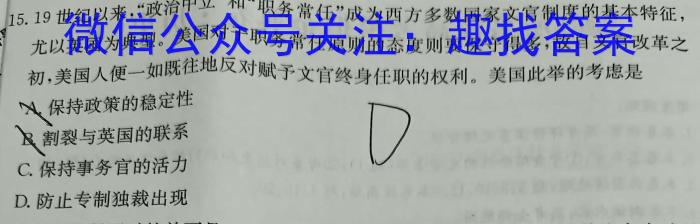 15.19世纪以来,“政治中立”和“职务常任”成为西方多数国家文官制度的基本特征,
微信公众号关注:趣找答案
尤以英国为典型。美国对于职务常任原则的态度则
改革之
初,美国人便一如既往地反对赋予文官终身任职的权利。美国此举的考虑是
A.保持政策的稳定性
B.割裂与英国的联系
C.保持事务官的活力
D.防止专制独裁出现
D